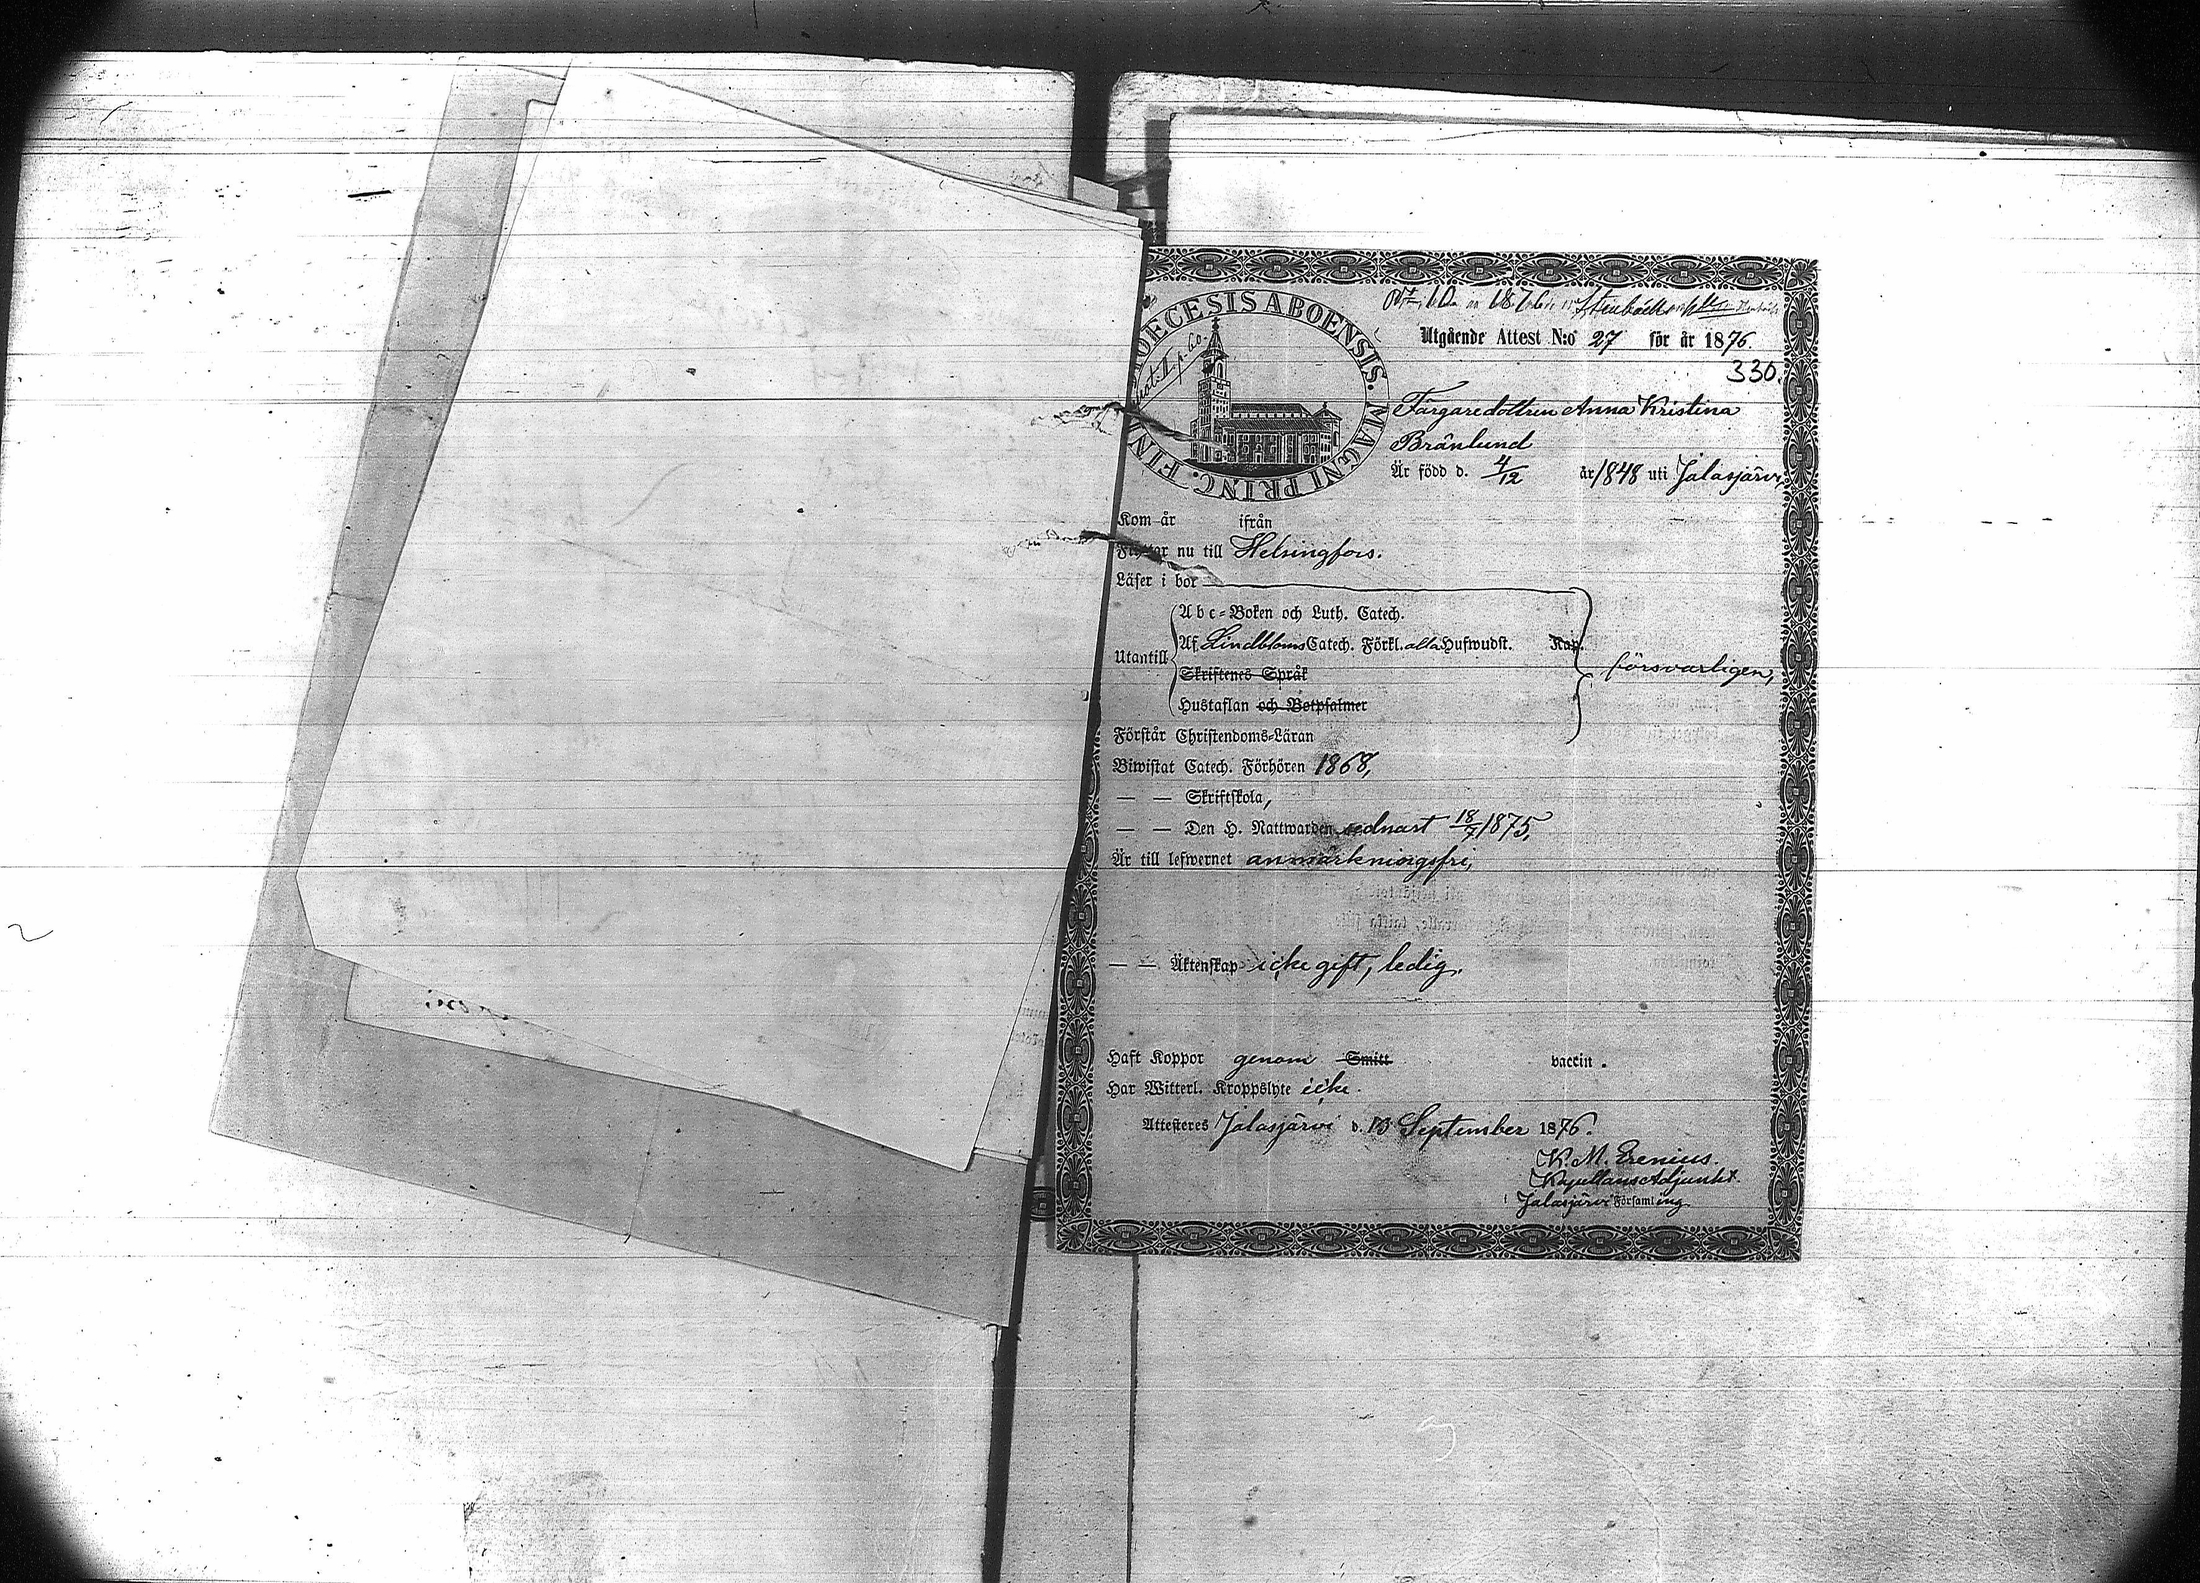 DIOECESIS ABOENSIS. MAGNI PRINC. FINL
II p. 60.
10 1876
Utgående Attest N:o 27 för år 1876.
330.
Färgaredottren Anna Kristina
Brånlund
Är född d. 4/12 år 1848 uti Jalasjärvi,
Kom år ifrån
Flyttar nu till Helsingfors.
Läser i bok
Abc-Boken och Luth. Catech.
Utantill Af Lindbloms Catech. Förkl. alla Hufwudst. Kap.
Skriftenes Språk försvarligen,
Hustaflan och Botpsalmer
Förstår Christendoms-Läran
Biwistat Catech. Förhören 1868,
— — Skriftskola,
— — Den H. Nattwarden sednast 18/7 1875,
Är till lefwernet anmärkningsfri,
— — Äktenskap icke gift, ledig.
Haft Koppor genom Smitt vaccin.
Har Witterl. Kroppslyte icke.
Attesteres Jalasjärvi d. 13 September 1876.
K. M. Erenius.
Kapellans Adjunkt
i Jalasjärvi Församling